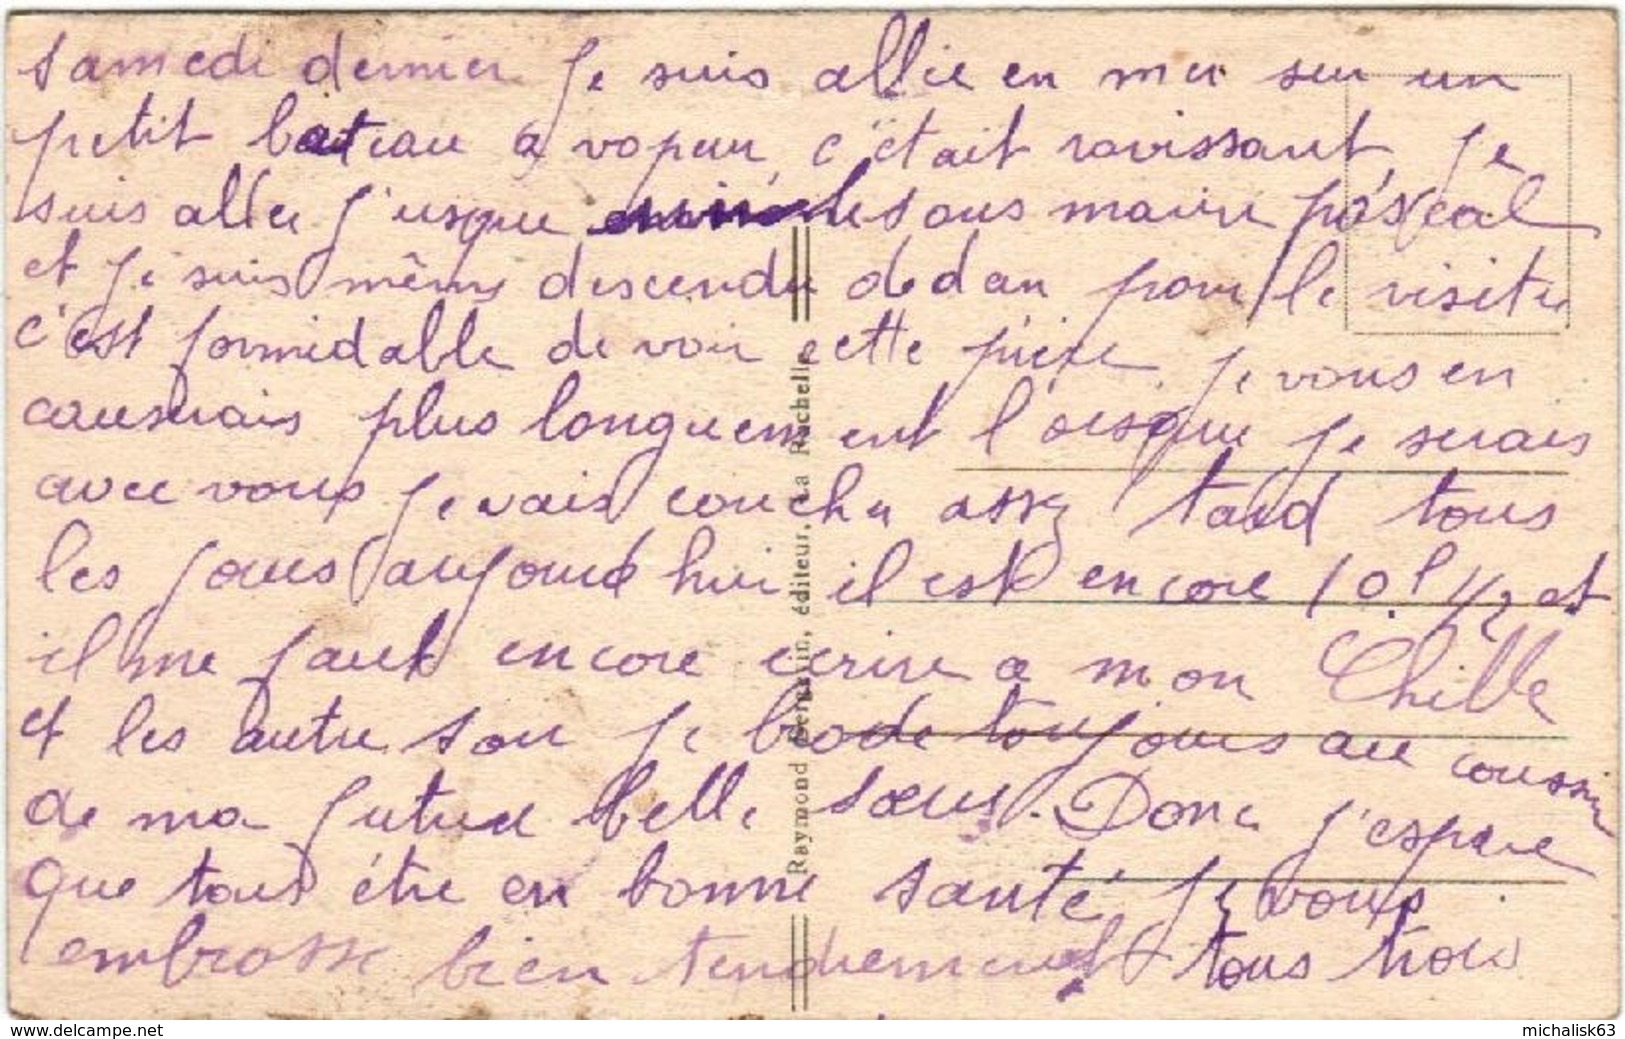 samedi dernier je suis allie en mer sur un
petit bateau a vapeur, c'était ravissant, je
suis aller j'usque le sous marin pascal
et je suis même descendu dedan pour le visiter
c'est formidable de voir cette pièce, je vous en
causerais plus longuement l'orsque je serais
avec vous je vais coucher assez tard tous
les jours aujourd hui il est encore 10 h 1/2 et
il me faut encore écrire a mon Chille
et les autre soir je brode toujours au coussin
de ma future belle sœur. Donc j'espère
que tous étre en bonne santé, je vous
embrasse bien tendrement tous trois
Raymond Bergevin, éditeur, La Rochelle
www.delcampe.net
michalisk63